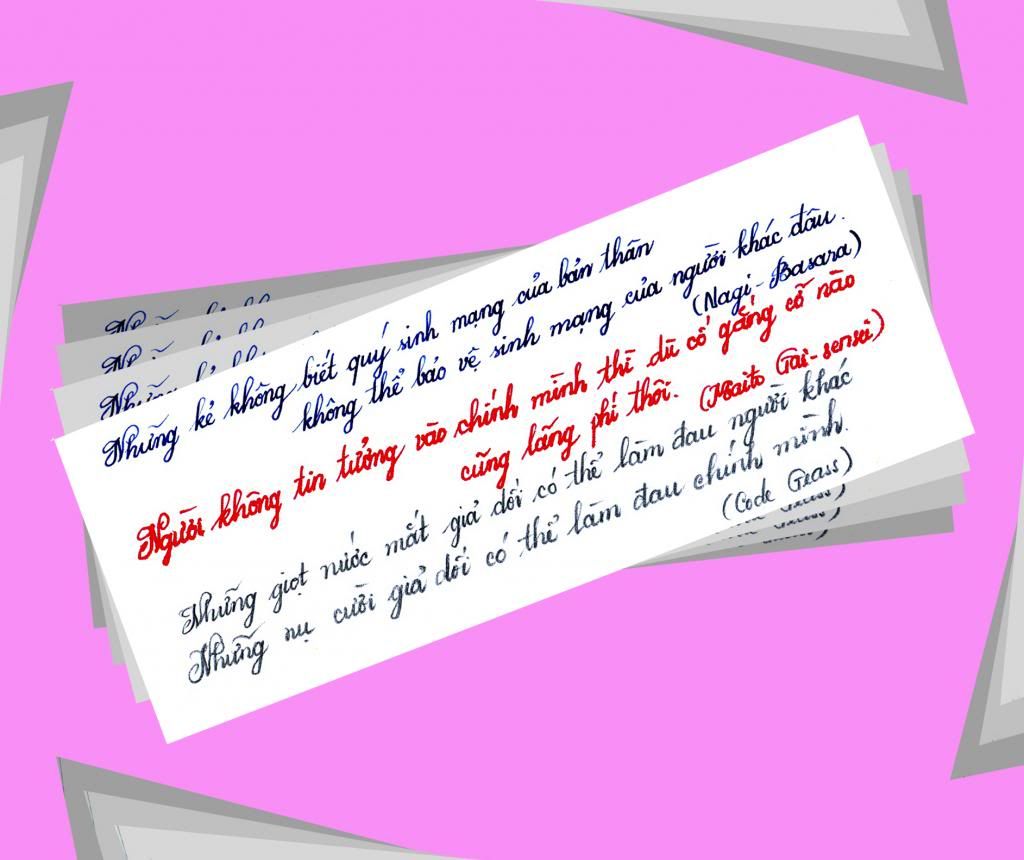 Những kẻ không biết quý sinh mạng của bản thân
không thể bảo vệ sinh mạng của người khác đâu.
(Nagi-Basara)
Người không tin tưởng vào chính mình thì dù cố gắng cỡ nào
cũng lãng phí thôi.
(Maito Gai-sensei)
Những giọt nước mắt giả dối có thể làm đau người khác
Những nụ cười giả dối có thể làm đau chính mình.
(Code Geass)